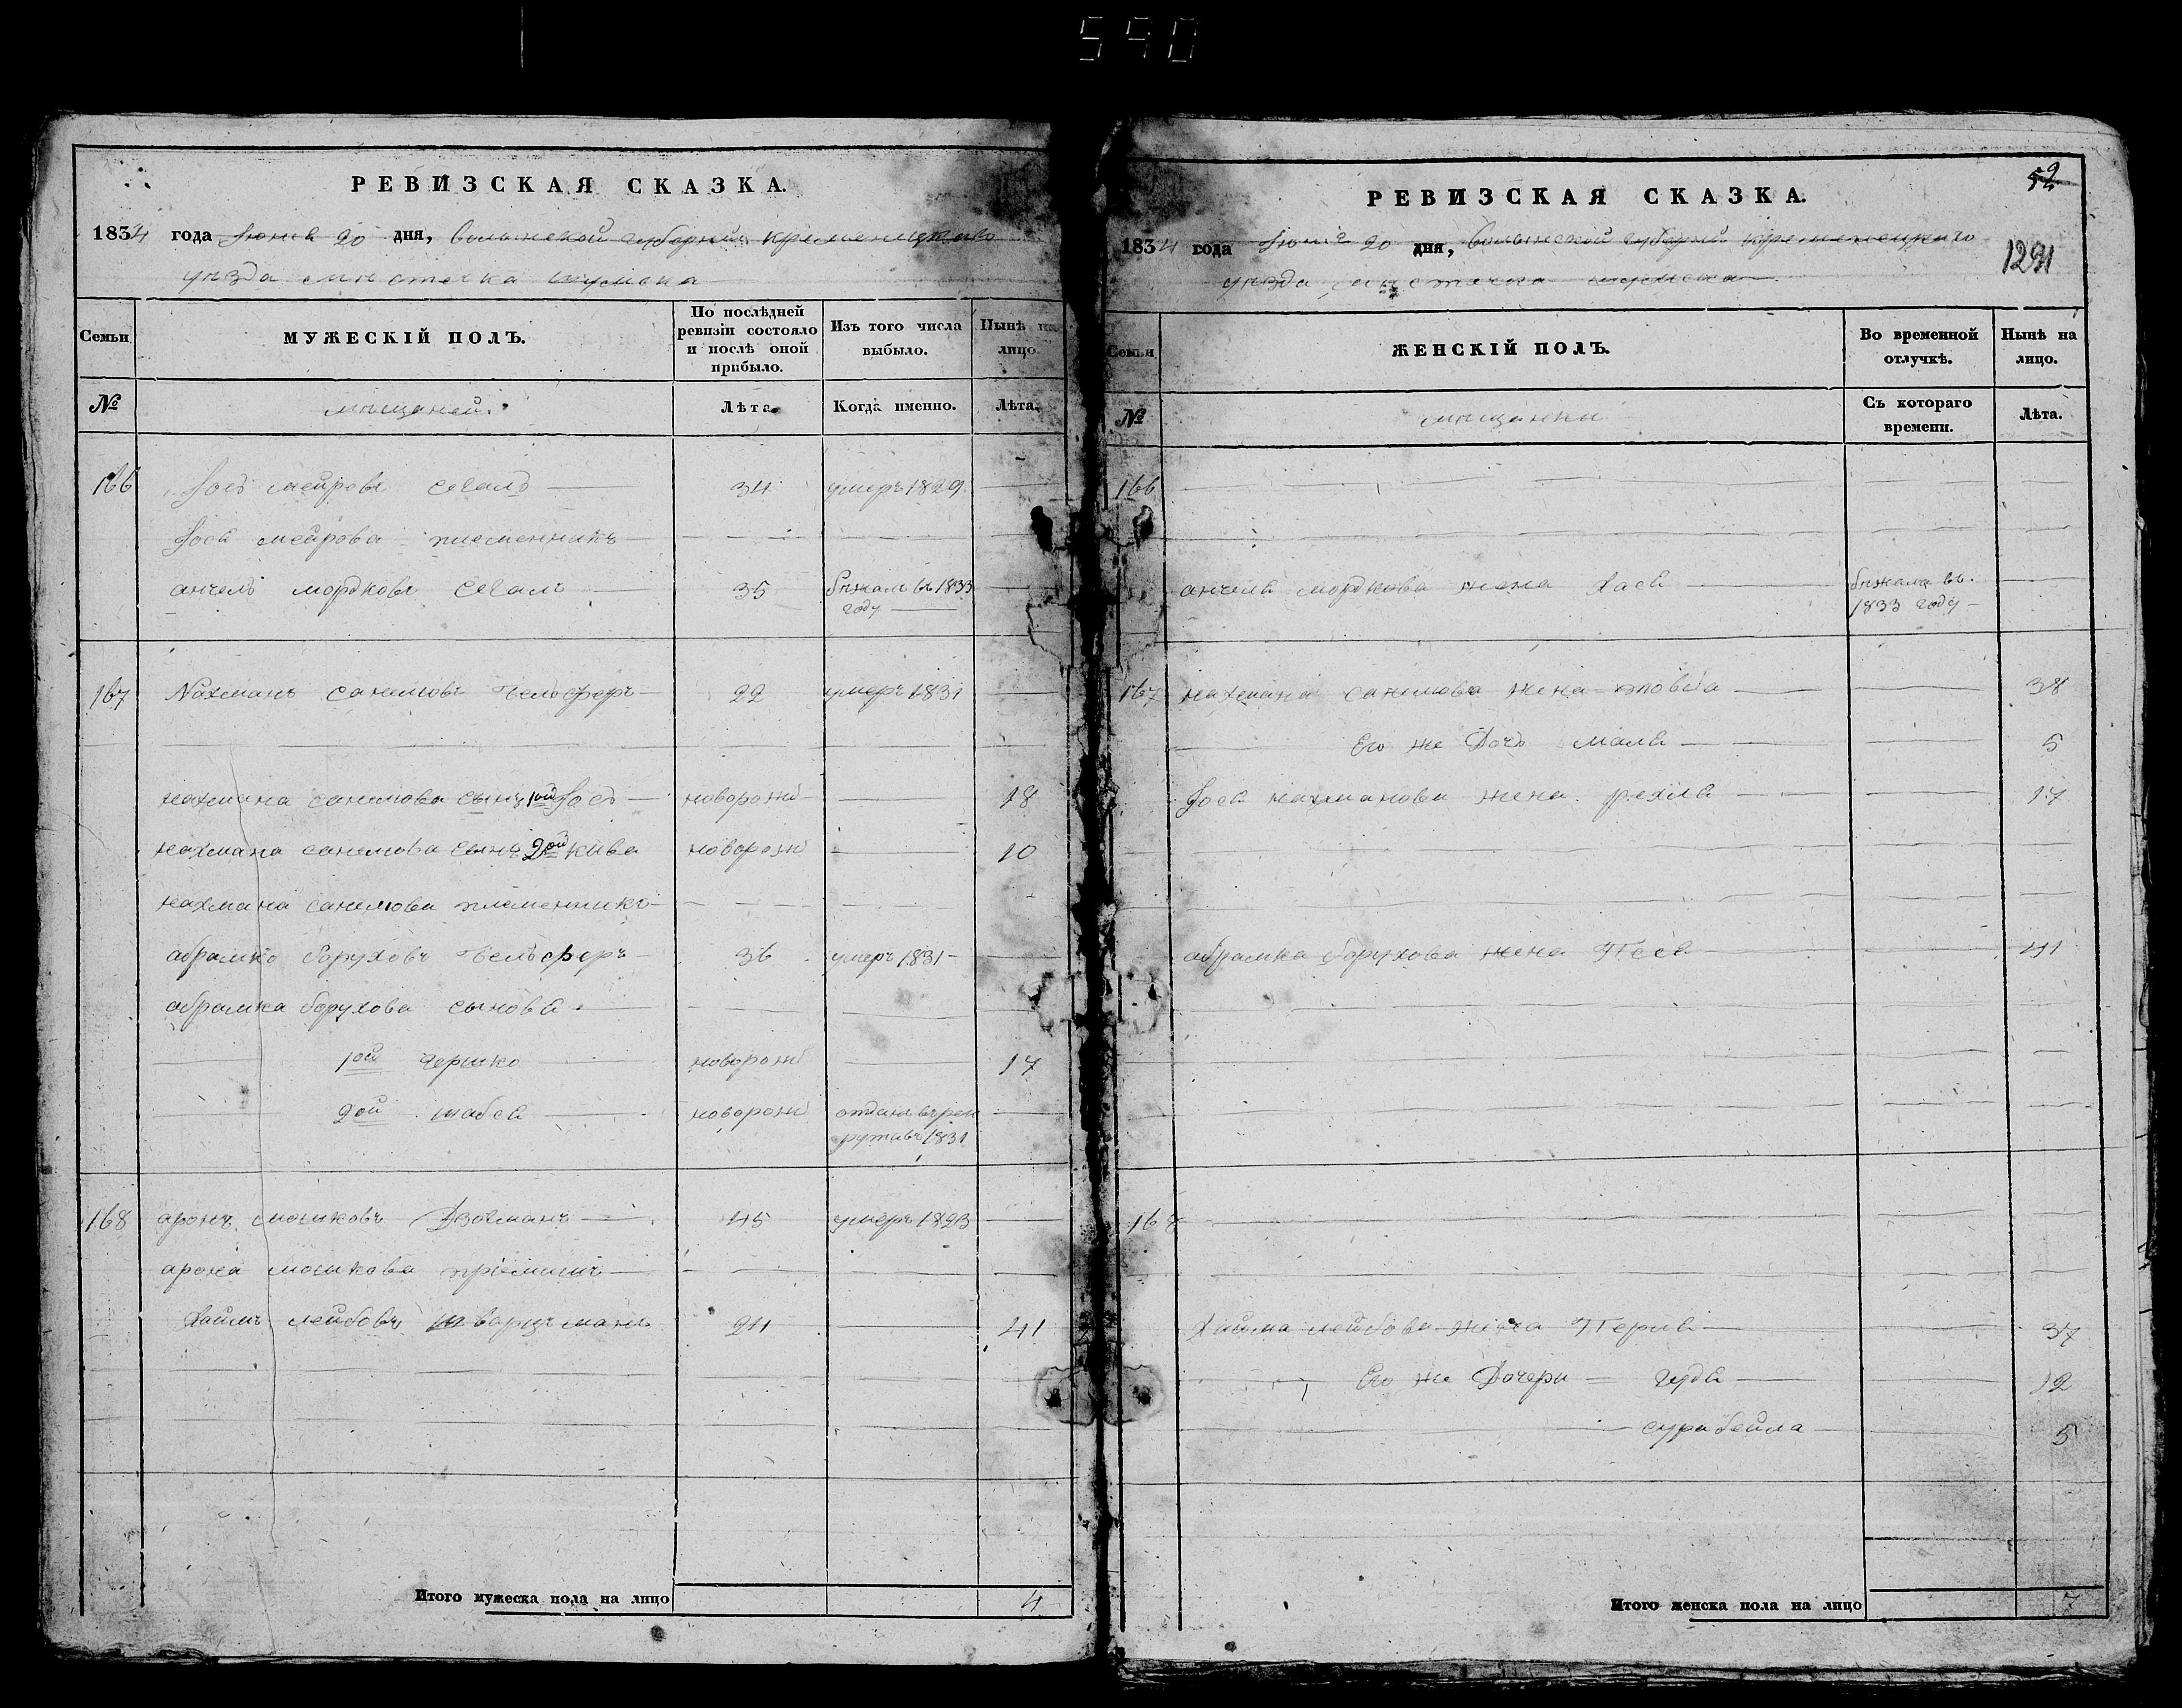 590
РЕВИЗСКАЯ СКАЗКА.
1834 года Июня 20 дня, волынской губерніи кременецкаво
уезда местечка шумска
Семьи
МУЖЕСКІЙ ПОЛЪ.
По послѣдней ревизіи состояло и послѣ оной прибыло.
Изъ того числа выбыло.
Нынѣ на лицо.
№
мещаней.
Лѣта.
Когда именно.
Лѣта.
166 Іось мейровъ сегаль 34 умеръ 1829
Іося мейрова племенникъ
анчель мордковъ сегаль 35 бежал въ 1833
году
167 Нахманъ санелювъ 22 умеръ 1831
нахмана санелюва сынъ 1ой Іось новорожд 18
нахмана санелюва сынъ 2ой кива новорожд 10
нахмана санелюва племенникъ
абрамко боруховъ 36 умеръ 1831
абрамка борухова сыновя
1ой новорожд 17
2ой шабся новорожд отданъ въ рек
рутавъ 1831
168 аронъ мошковъ Дзохманъ 45 умеръ 1823
арона мошкова пріемишъ
Хаимъ лейбовъ шварцъманъ 41
Итого мужеска пола на лицо 4
РЕВИЗСКАЯ СКАЗКА.
52
1834 года Июня 20 дня, волынской губерніи кременецкаго
уезда местечка шумска
1291
Семьи
ЖЕНСКІЙ ПОЛЪ.
Во временной отлучкѣ.
Нынѣ на лицо.
№
мещанки
Съ котораго времени.
Лѣта.
166
анчеля мордкова жена Хася бежала въ
1833 году
167 нахмана санелюва жена 38
Его же Дочь маля 5
Іося нахманова жена рехля 17
абрамка борухова жена Песя 41
168
Хаима лейбова жена Перля 37
Его же Дочери гудя 12
сурабейла 5
Итого женска пола на лицо 7